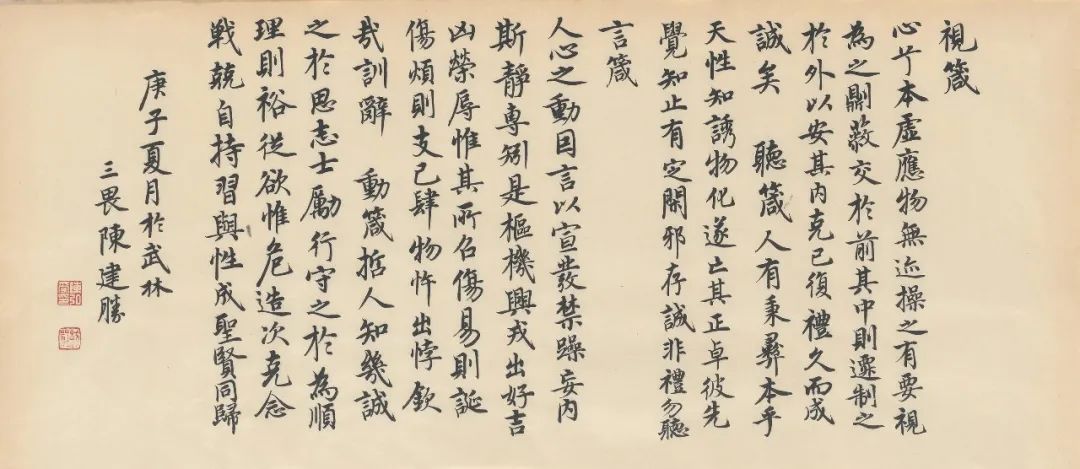 視箴
心兮本虛應物無迹操之有要視
為之則蔽交於前其中則遷制之
於外以安其内克己復禮久而成
誠矣 聽箴人有秉彝本乎
天性知誘物化遂亡其正卓彼先
覺知止有定閑邪存誠非禮勿聽
言箴
人心之動因言以宣發禁躁妄内
斯靜專矧是樞機興戎出好吉
凶榮辱惟其所召傷易則誕
傷煩則支己肆物忤出悖欽
哉訓辭 動箴哲人知幾誠
之於思志士勵行守之於為順
理則裕從欲惟危造次克念
戦兢自持習與性成聖賢同歸
庚子夏月於武林
三畏陳建勝